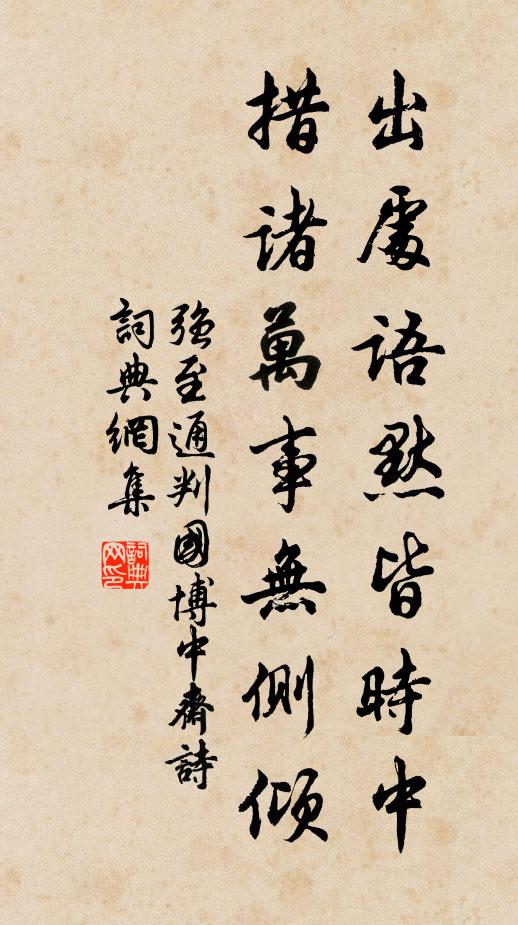 出處語默皆時中
措諸萬事無側傾
強至通判國博中齋詩
詞典網集
詞典網印